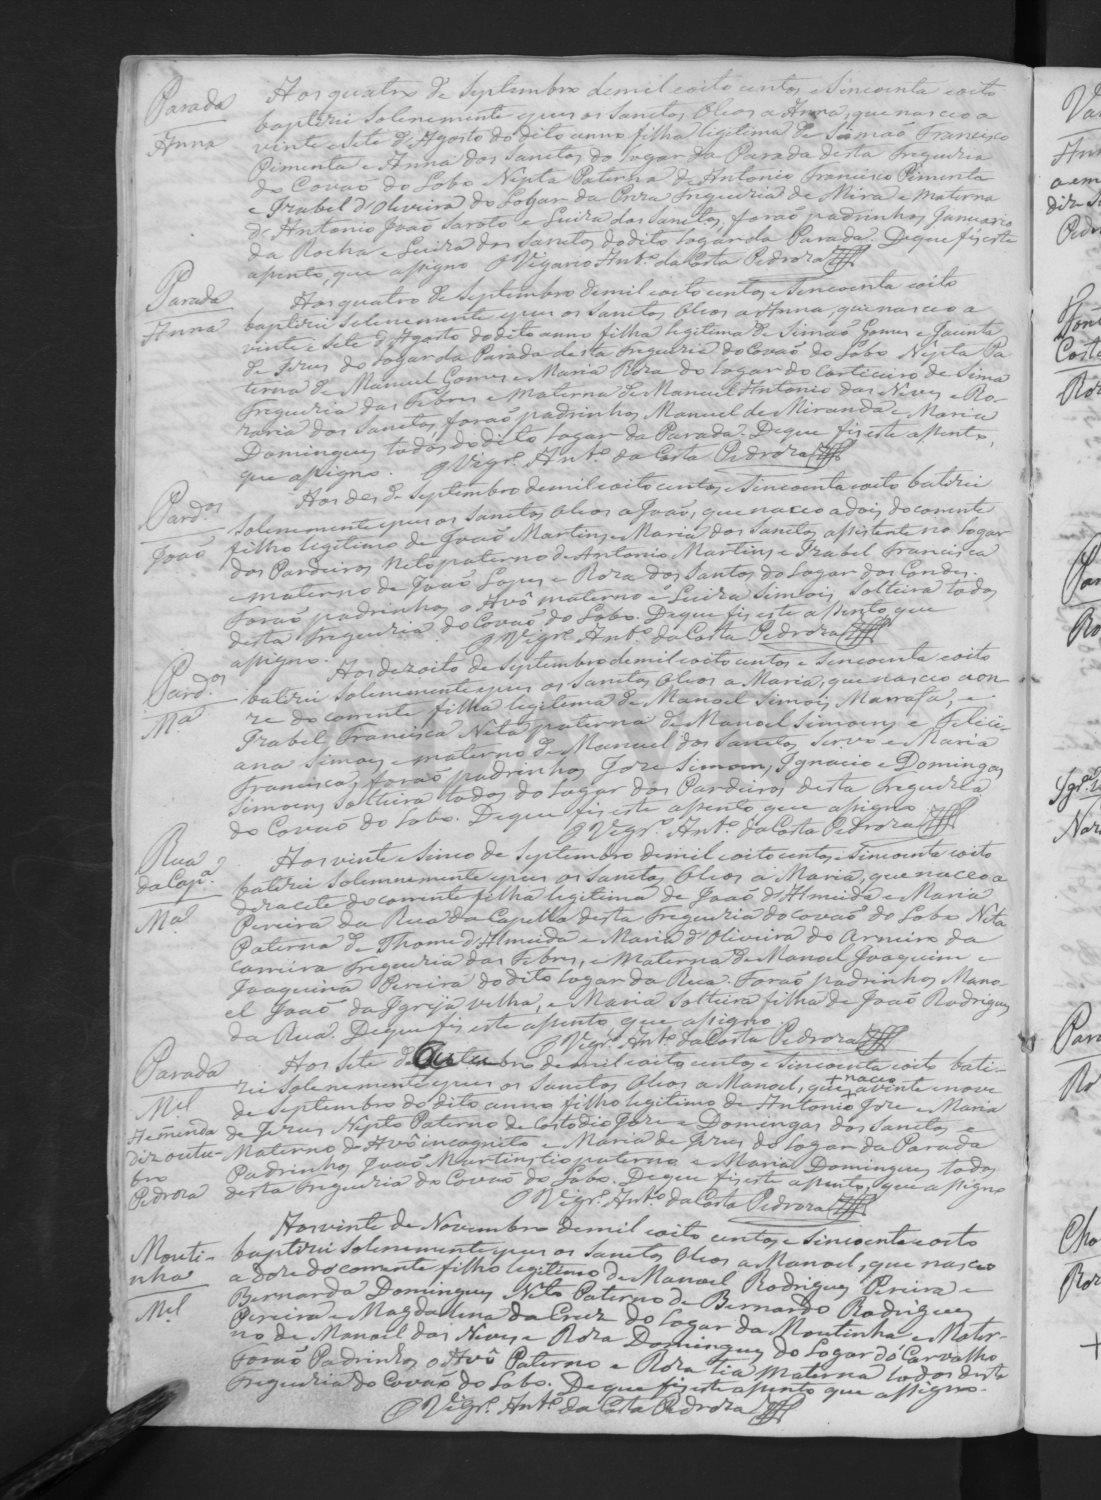 Parada
Anna
Aos quatro de Septembro de mil e oito centos e sincoenta e oito
baptizei solenemente e pus os Sanctos Oleos a Anna, que nasceo a
vinte e sete d'Agosto do dito anno filha legitima de Simaõ Francisco
Pimenta e Anna dos Sanctos do Lugar da Parada desta Freguezia
do Covaõ do Lobo Nepta Paterna de Antonio Francisco Pimenta
e Izabel d'Oliveira do Logar da Preza Freguezia de Mira e Materna
de Antonio Joaõ e Luiza dos Sanctos, foraõ padrinhos Januario
da Rocha e Luiza dos Sanctos do dito Logar da Parada. De que fis este
apento, que assigno O Vigario Ant.º da Costa Pedroza
Parada
Anna
Aos quatro de Septembro de mil e oito centos e sincoenta e oito
baptizei solenemente e pus os Sanctos Oleos a Anna, que nasceo a
vinte e sete d'Agosto do dito anno filha legitima de Simaõ Gomes e Jacinta
de Jezus do Logar da Parada desta Freguezia do Covaõ do Lobo Nepta Pa
terna de Manuel Gomes e Maria Roza do Logar do Corticeiro de Sima
Freguezia das Febres e Materna de Manuel Antonio das Neves e Ro-
zaria dos Sanctos, foraõ padrinhos Manuel de Miranda e Maria
Domingues todos do dito Logar da Parada. De que fis este apento,
que assigno. O Vigr.º Ant.º da Costa Pedroza
Pard.os
Joaõ
Aos des de Septembro de mil e oito centos e sincoenta e oito batizei
solenemente e pus os Sanctos Oleos a Joaõ, que nasceo a dois do corrente
filho legitimo de Joaõ Martins e Maria dos Sanctos assistente no Logar
dos Pardeiros Neto paterno de Antonio Martins e Izabel Francisca
e materno de Joaõ Lopes e Roza dos Santos do Logar dos Condes.
Foraõ padrinhos o Avô materno e Luiza Simois Solteira todos
desta Freguezia do Covaõ do Lobo. De que fis este apento que
assigno. O Vigr.º Ant.º da Costa Pedroza
Pard.os
M.a
Aos dezoito de Septembro de mil e oito centos e sincoenta e oito
batizei solenemente e pus os Sanctos Oleos a Maria, que nasceo a on
ze do corrente filha legitima de Manoel Simois Marrafa, e
Izabel Francisca Neta paterna de Manoel Simoens e Felici-
ana Simois e materna de Manuel dos Sanctos Servo e Maria
Francisca, foraõ padrinhos Joze Simoens Ignacio e Domingas
Simoens Solteira todos do Logar dos Pardeiros desta Freguezia
do Covaõ do Lobo. De que fis este apento que assigno
O Vigr.º Ant.º da Costa Pedroza
Rua
da Cap.a
M.a
Aos vinte e sinco de Septembro de mil e oito centos e sincoenta e oito
batizei solemnemente e pus os Sanctos Oleos a Maria, que nasceo a
dezacete do corrente filha legitima de Joaõ d'Almeida e Maria
Pereira da Rua da Capella desta Freguezia do Covaõ do Lobo Neta
Paterna de Thomé d'Almeida e Maria d'Oliveira do Arneiro da
Cameira Freguezia das Febres, e Materna de Manoel Joaquim e
Joaquina Pereira do dito Logar da Rua. Foraõ padrinhos Mano-
el Joaõ da Igreja velha, e Maria Solteira filha de Joaõ Rodrigues
da Rua. De que fis este apento que assigno.
O Vigr.º Ant.º da Costa Pedroza
Parada
M.el
A emenda
diz outu-
bro
Pedroza
Aos Sete de Outubro de mil e oito centos e sincoenta e oito bati-
zei solenemente e pus os Sanctos Oleos a Manoel, que + nasceo a vinte e nove
de Septembro do dito anno filho legitimo de Antonio Joze e Maria
de Jezus Nepto Paterno de Costodio Joze e Domingas dos Sanctos e
Materno de Avô incognito e Maria de Jezus do Logar da Parada
Padrinhos Joaõ Martins tio paterno e Maria Domingues todos
desta Freguezia do Covaõ do Lobo. De que fis este apento, que assigno
O Vigr.º Ant.º da Costa Pedroza
Mouti-
nha
M.el
Aos vinte de Novembro de mil oito centos e sincoenta e oito
baptizei solenemente e pus os Sanctos Oleos a Manoel, que nasceo
a doze do corrente filho legitimo de Manoel Rodrigues Pereira e
Bernarda Domingues Neto Paterno de Bernardo Rodrigues
Pereira e Magdalena da Cruz do Logar da Moutinha e Mater-
no de Manoel das Neves e Roza Domingues do Logar do Carvalho
Foraõ Padrinhos o Avô Paterno e Roza tia Materna todos desta
Freguezia do Covaõ do Lobo. De que fis este apento que assigno.
O Vigr.º Ant.º da Costa Pedroza